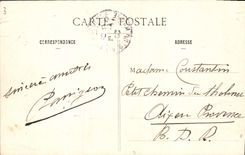 CARTE POSTALE
CORRESPONDANCE
ADRESSE
Madame Constantin
Petit chemin du Tholonet
Aix en Provence
B. D. R.
Sincère amitiés